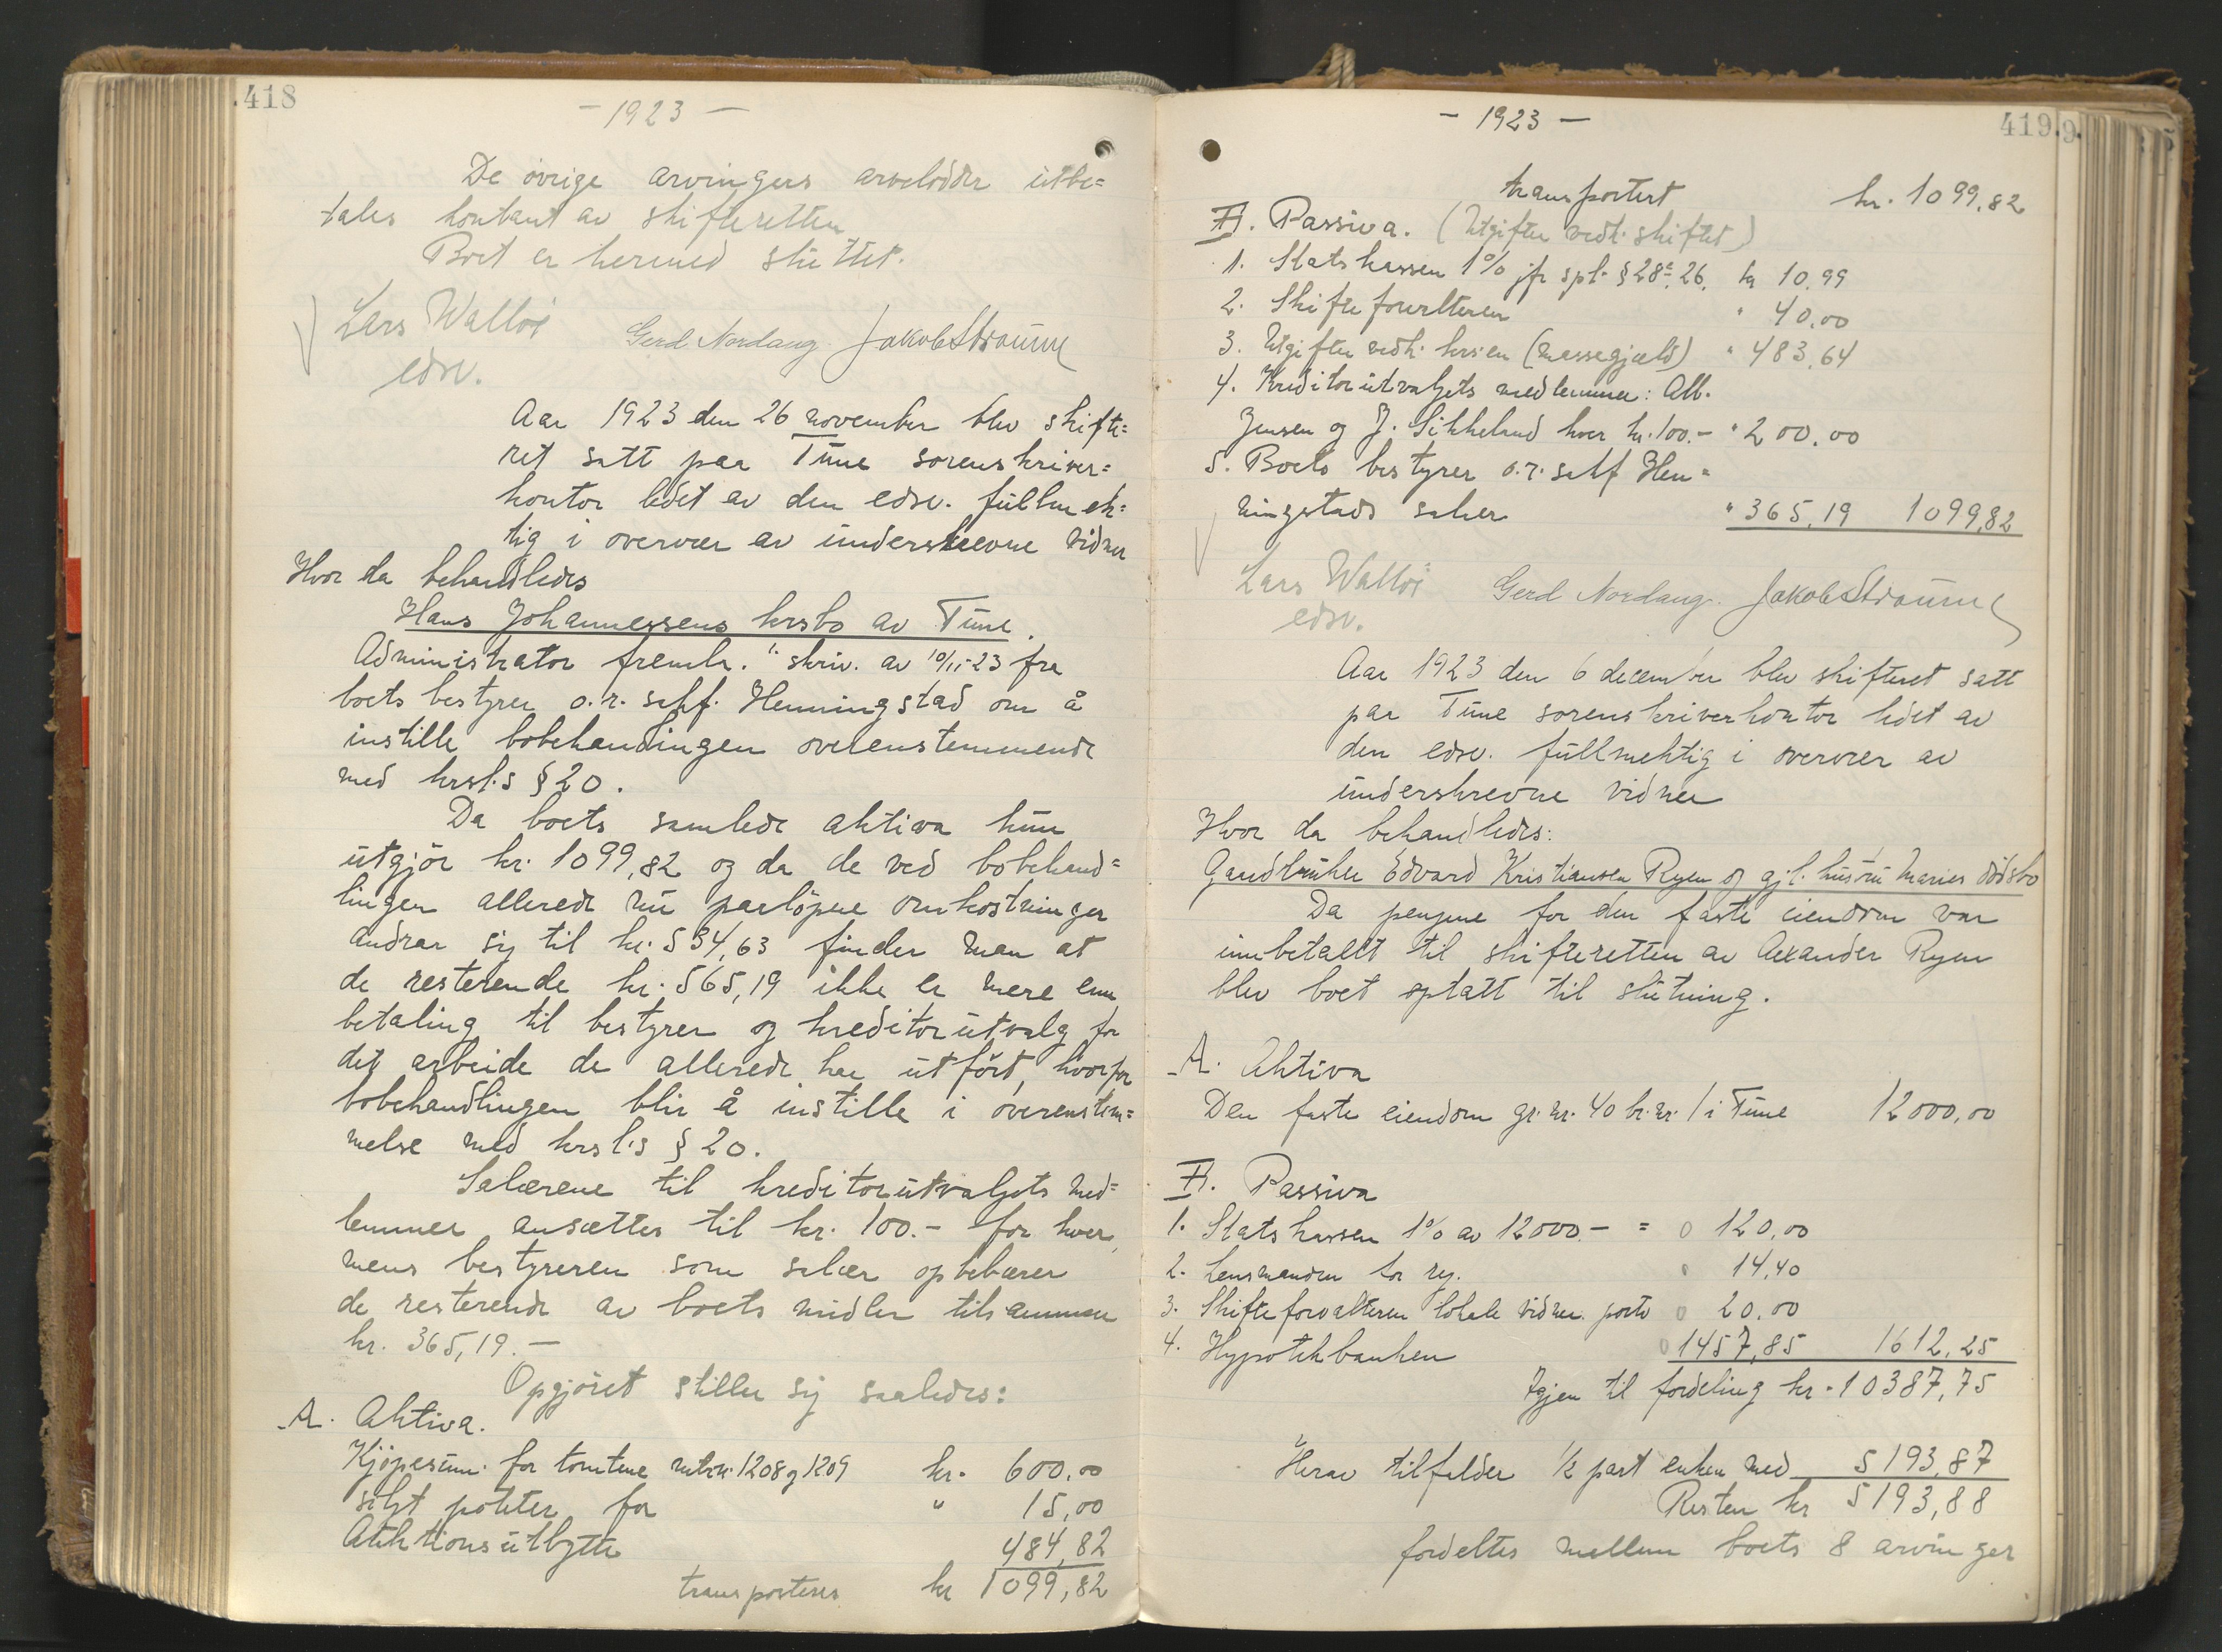 418
- 1923 -
De øvrige arvingers arvelodder utbe=
tales kontant av skifteretten
Boet er hermed sluttet.
Lars Walløe Gerd Nordang. Jakob Straume
edsv.
Aar 1923 den 26 november blev skifte=
ret satt paa Tune sorenskriver=
kontor ledet av den edsv. fullmek=
tig i overvær av underskrevne vidner
Hvor da behandledes
Hans Johannessens krsbo av Tune.
Administrator fremla. 1. skriv. av 10/11-23 fra
boets bestyrer o.r. sakf. Henningstad om å
instille bobehandlingen overenstemmende
med krsl.s § 20.
Da boets samlede aktiva kun
utgjør kr. 1099,82 og da de ved bobehand=
lingen allerede nu paaløpne omkostninger
andrar sig til kr. 534,63 finder man at
de resterende kr. 565,19 ikke er mere enn
betaling til bestyrer og kreditorutvalg for
det arbeide de allerede har utført, hvorfor
bobehandlingen blir å instille i overenstem=
melse med krsl.s § 20.
Salærene til kreditorutvalgets med=
lemmer ansættes til kr. 100.- for hver,
mens bestyreren som salær opbebærer
de resterende av boets midler tilsammen
kr. 365,19.-
Opgjøret stiller sig saaledes:
A. Aktiva.
Kjøpesum for tomtene matr.nr. 1208 og 1209 kr. 600,00
solgt poteter for " 15,00
Auktionsutbytte 484,82
transporteres kr 1099,82
419
9.
- 1923 -
transportert kr. 1099,82
B. Passiva. (Utgifter vedk. skiftet)
1. Statskassen 1% jfr spl. § 28 26. kr 10,99
2. Skifteforvalteren " 40,00
3. Utgifter vedk. krs.en (massegjæld) " 483,64
4. Kreditorutvalgets medlemmer: Alb.
Jensen og J. Sikkeland hver kr. 100.- " 200,00
5. Boets bestyrer o.r. sakf Hen=
ningstads salær " 365,19 1099,82
Lars Walløe Gerd Nordang. Jakob Straume
edsv.
Aar 1923 den 6 december blev skifteret satt
paa Tune sorenskriverkontor ledet av
den edsv. fullmektig i overvær av
underskrevne vidner
Hvor da behandledes:
Gaardbruker Edvard Kristiansen Ryen og gjl. hustru Maries dødsbo
Da pengene for den faste eiendom var
innbetalt til skifteretten av Alexander Ryen
blev boet optatt til slutning.
A. Aktiva
Den faste eiendom gr. nr. 40 br. nr. 1 i Tune 12000,00
B. Passiva
1. Statskassen 1% av 12000.- = 120,00
2. Lensmanden for reg. 14,40
3. Skifteforvalteren lokale vidner porto 20,00
4. Hypotekbanken 1457,85 1612,25
Igjen til fordeling kr. 10387,75
Herav tilfalder 1/2 part enken med 5193,87
Resten kr 5193,88
fordeltes mellem boets 8 arvinger